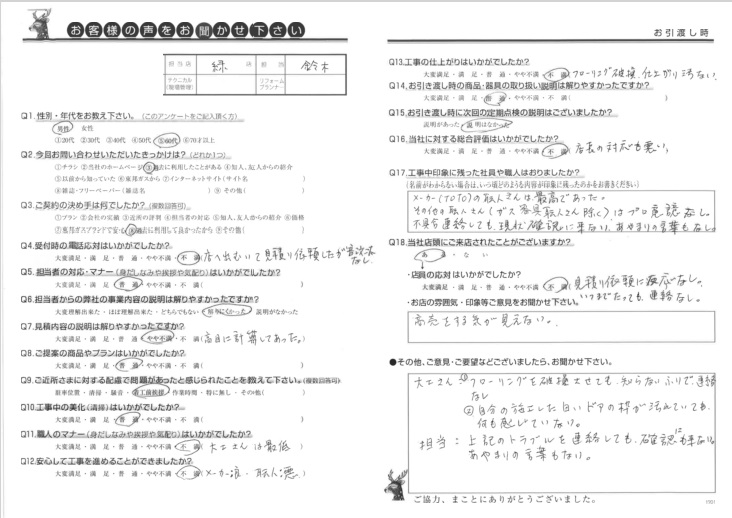 お客様の声をお聞かせ下さい
担当店 緑 店 担当 鈴木
テクニカル
リフォームプランナー
Q1.性別・年代をお教え下さい。(このアンケートをご記入頂く方)
男性 女性
①20代 ②30代 ③40代 ④50代 ⑤60代 ⑥70才以上
Q2.今回お問い合わせいただいたきっかけは?(どれか1つ)
①チラシ ②当社のホームページ ③過去に利用したことがある ④知人、友人からの紹介
⑤以前から知っていた ⑥東邦ガスから ⑦インターネットサイト(サイト名 )
⑧雑誌・フリーペーパー(雑誌名 ) ⑨その他( )
Q3.ご契約の決め手は何でしたか?(複数回答可)
①プラン ②会社の実績 ③近所の評判 ④担当者の対応 ⑤知人、友人からの紹介 ⑥価格
⑦東邦ガスブランドで安心 ⑧過去に利用して良かったから ⑨その他( )
Q4.受付時の電話応対はいかがでしたか?
大変満足・満 足・普 通・やや不満・不 満 (店へ出むいて見積り依頼したが
なし。
Q5.担当者の対応・マナー(身だしなみや挨拶や気配り)はいかがでしたか?
大変満足・満 足・普 通・やや不満・不 満( )
Q6.担当者からの弊社の事業内容の説明は解りやすかったですか?
大変理解出来た・ほぼ理解出来た・どちらでもない・解りにくかった・説明がなかった
Q7.見積内容の説明は解りやすかったですか?
大変満足・満 足・普 通・やや不満・不 満(高目に計算してあった。)
Q8.ご提案の商品やプランはいかがでしたか?
大変満足・満 足・普 通・やや不満・不 満( )
Q9.ご近所さまに対する配慮で問題があったと感じられたことを教えて下さい。(複数回答可)
駐車位置・清掃・騒音・着工前挨拶・作業時間・特に無し・その他( )
Q10.工事中の美化(清掃)はいかがでしたか?
大変満足・満 足・普 通・やや不満・不 満( )
Q11.職人のマナー(身だしなみや挨拶や気配り)はいかがでしたか?
大変満足・満 足・普 通・やや不満・不 満(大工さんは最低)
Q12.安心して工事を進めることができましたか?
大変満足・満 足・普 通・やや不満・不 満(メーカー 職人悪)
お引渡し時
Q13.工事の仕上がりはいかがでしたか?
大変満足・満 足・普 通・やや不満・不 満(フローリング破損、仕上がり汚ない。)
Q14.お引き渡し時の商品・器具の取り扱い説明は解りやすかったですか?
大変満足・満 足・普 通・やや不満・不 満( )
Q15.お引き渡し時に次回の定期点検の説明はございましたか?
説明があった・説明はなかった
Q16.当社に対する総合評価はいかがでしたか?
大変満足・満 足・普 通・やや不満・不 満(店長の対応も悪い。)
Q17.工事中印象に残った社員や職人はおりましたか?
(名前がわからない場合は、いつ頃どのような内容が印象に残ったのかをお書きください)
メーカー(TOTO)の職人さんは最高であった。
その他の職人さん(ガス器具職人さん除く)はプロ意識なし。
不具合連絡しても、現状確認に来ない。あやまりの言葉もなし。
Q18.当社店頭にご来店されたことがございますか?
あ る・な い
・店員の応対はいかがでしたか?
大変満足・満 足・普 通・やや不満・不 満(見積り依頼に反応なし。
いつまでたっても、連絡なし。
・お店の雰囲気・印象等ご意見をお聞かせ下さい。
商売をする気が見えない。
●その他、ご意見・ご要望などございましたら、お聞かせ下さい。
大工さん ①フローリングを破損させても、知らないふりで連絡
なし
②自分の施工した白いドアの枠が汚えていても、
何も感じていない。
担当:上記のトラブルを連絡しても、確認にも来ない。
あやまりの言葉もない。
ご協力、まことにありがとうございました。